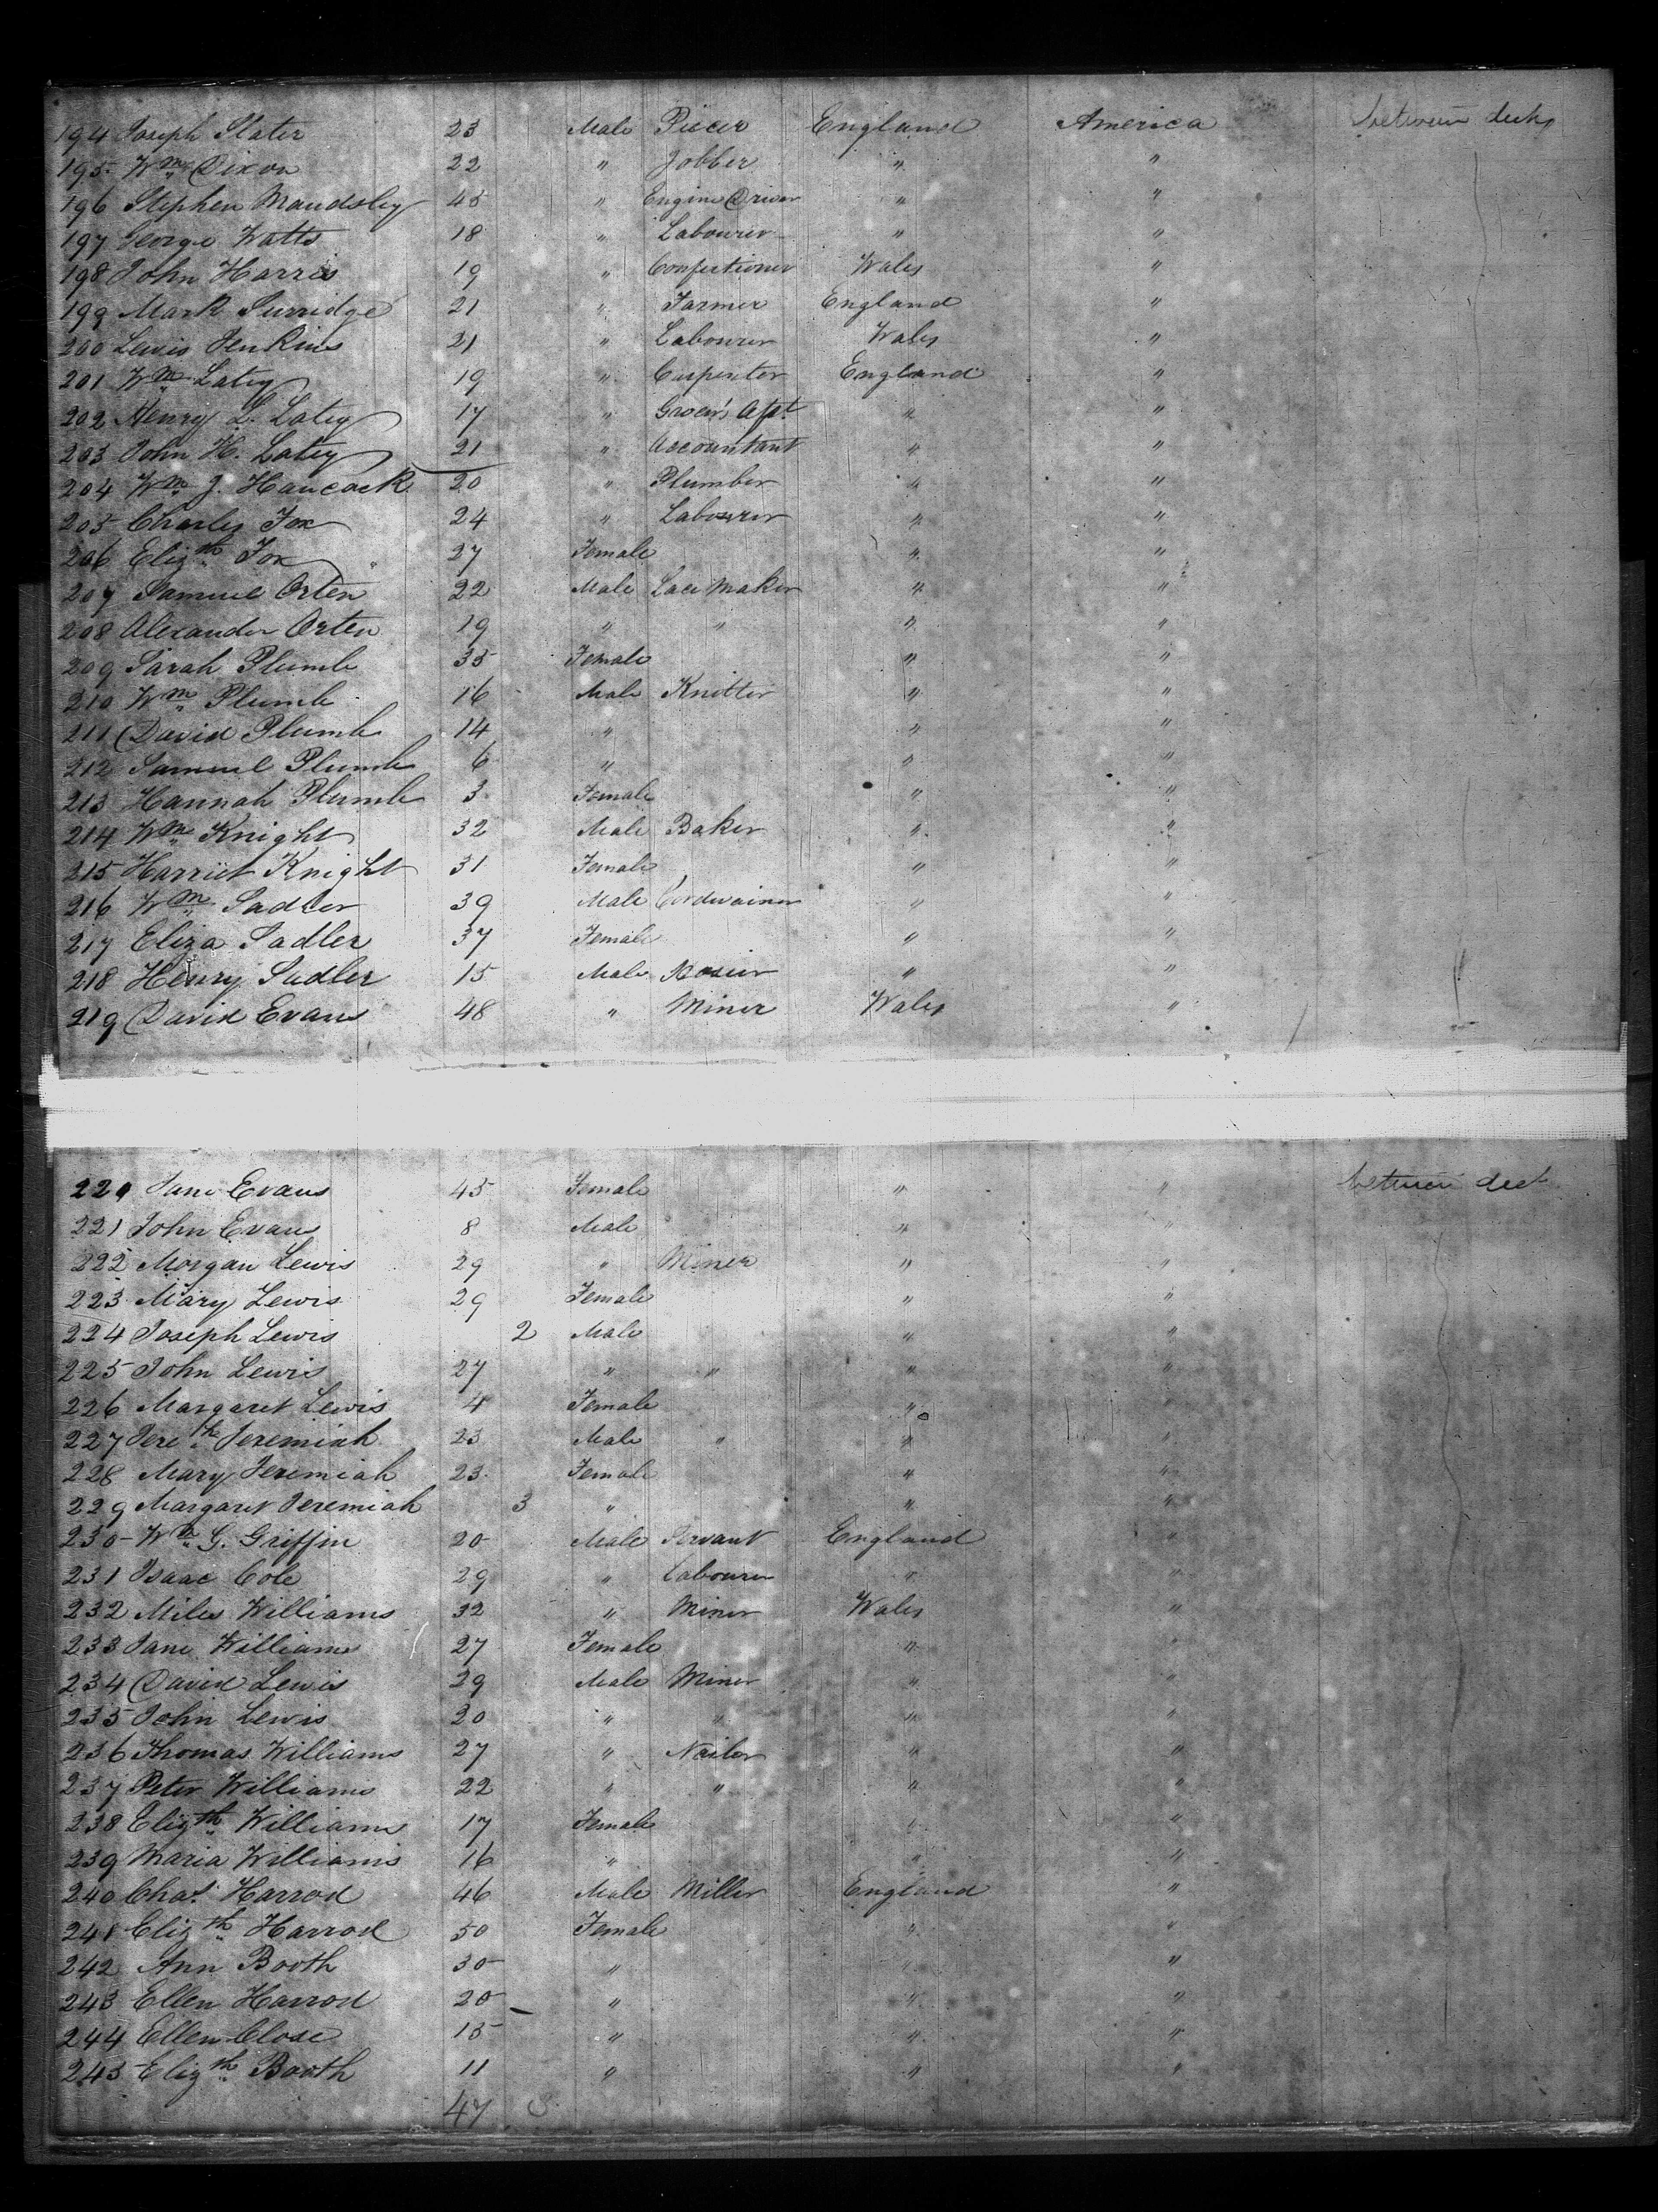 194 Joseph Slater 23 Male Piecer England America between decks
195 Wm Dixon 22 " Jobber " "
196 Stephen Maudsley 45 " Engine Driver " "
197 George Watts 18 " Labourer " "
198 John Harris 19 " Confectioner Wales "
199 Mark Surridge 21 " Farmer England "
200 Lewis Jenkins 21 " Labourer Wales "
201 Wm Latey 19 " Carpenter England "
202 Henry L. Latey 17 " Grocer's Apt " "
203 John H. Latey 21 " Accountant " "
204 Wm J. Hancock 20 " Plumber " "
205 Charles Fox 24 " Labourer " "
206 Elizth Fox 27 Female " "
207 Samuel Orten 22 Male Lace Maker " "
208 Alexander Orten 19 " " " "
209 Sarah Plumb 35 Female " "
210 Wm Plumb 16 Male Knitter " "
211 David Plumb 14 " " "
212 Samuel Plumb 6 " " "
213 Hannah Plumb 3 Female " "
214 Wm Knight 32 Male Baker " "
215 Harriet Knight 31 Female " "
216 Wm Sadler 39 Male Cordwainer " "
217 Eliza Sadler 37 Female " "
218 Henry Sadler 15 Male " "
219 David Evans 48 " Miner Wales "
220 Jane Evans 45 Female " " between deck
221 John Evans 8 Male " "
222 Morgan Lewis 29 " Miner " "
223 Mary Lewis 29 Female " "
224 Joseph Lewis 2 Male " "
225 John Lewis 27 " " " "
226 Margaret Lewis 4 Female " "
227 Jereth Jeremiah 23 Male " " "
228 Mary Jeremiah 23 Female " "
229 Margaret Jeremiah 3 " " "
230 Wm G. Griffin 20 Male Servant England "
231 Isaac Cole 29 " Labourer " "
232 Miles Williams 32 " Miner Wales "
233 Jane Williams 27 Female " "
234 David Lewis 29 Male Miner " "
235 John Lewis 20 " " " "
236 Thomas Williams 27 " Nailor " "
237 Peter Williams 22 " " " "
238 Elizth Williams 17 Female " "
239 Maria Williams 16 " " "
240 Chas Harrod 46 Male Miller England "
241 Elizth Harrod 50 Female " "
242 Ann Booth 30 " " "
243 Ellen Harrod 20 " " "
244 Ellen Close 15 " " "
245 Elizth Booth 11 " " "
47 3